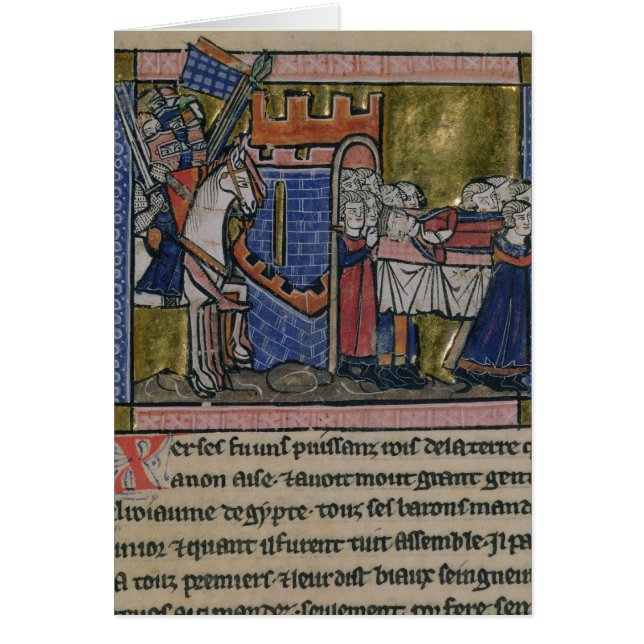 Xerses fu uns puissanz rois de la terre q
anon aise · ⁊ auoit mout grant gent
el roiaume degypte · touz ses barons mand
⁊quant il furent tuit assemble · Jl pa
A touz premiers · ⁊ leur dist biaux seingneur
seulement